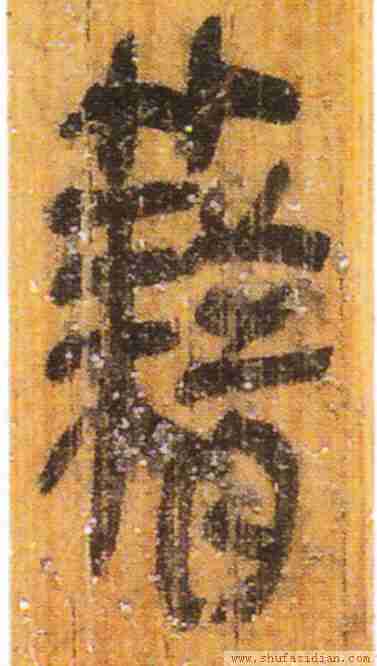 藉
www.shufazidian.com